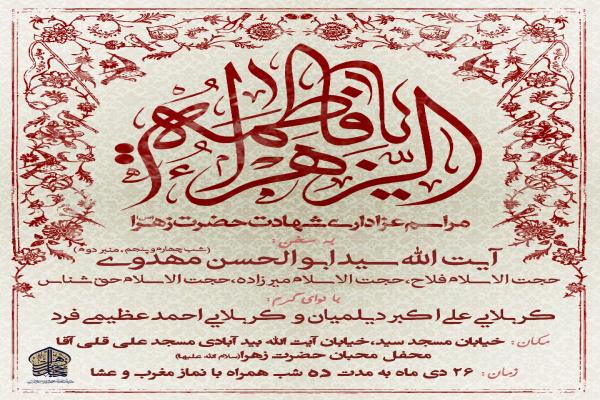 یا فاطمة الزهراء
مراسم عزاداری شهادت حضرت زهرا
به سخن:
آیت الله سید ابوالحسن مهدوی (شب چهارم و پنجم، منبر دوم)
حجت الاسلام فلاح، حجت الاسلام میرزاده، حجت الاسلام حق شناس
با نوای گرم:
کربلایی علی اکبر دیلمیان و کربلایی احمد عظیمی فرد
مکان: خیابان مسجد سید، خیابان آیت الله بید آبادی مسجد علی قلی آقا
محفل محبان حضرت زهرا (سلام الله علیها)
زمان: ۲۶ دی ماه به مدت ده شب همراه با نماز مغرب و عشا